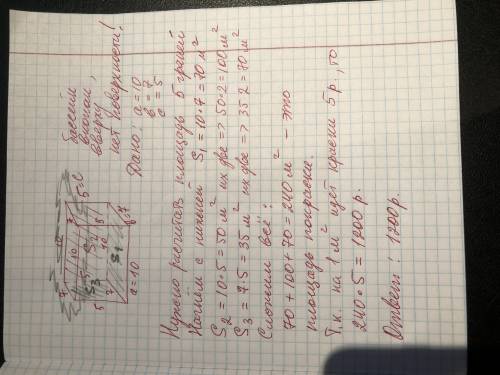 бассейн
вкопан,
вверху
нет поверхности!
Дано: a = 10
b = 7
c = 5
5=c
10
S2
S3
S1
5
7
a = 10
Нужно расчитать площадь 5 граней
Начнём с нижней S1 = 10·7 = 70 м²
S2 = 10·5 = 50 м² их две => 50·2 = 100 м²
S3 = 7·5 = 35 м² их две => 35·2 = 70 м²
Сложим всё:
70 + 100 + 70 = 240 м² - это
площадь покраски.
Т.к. на 1 м² идёт краски 5 р., то
240·5 = 1200 р.
Ответ: 1200 р.